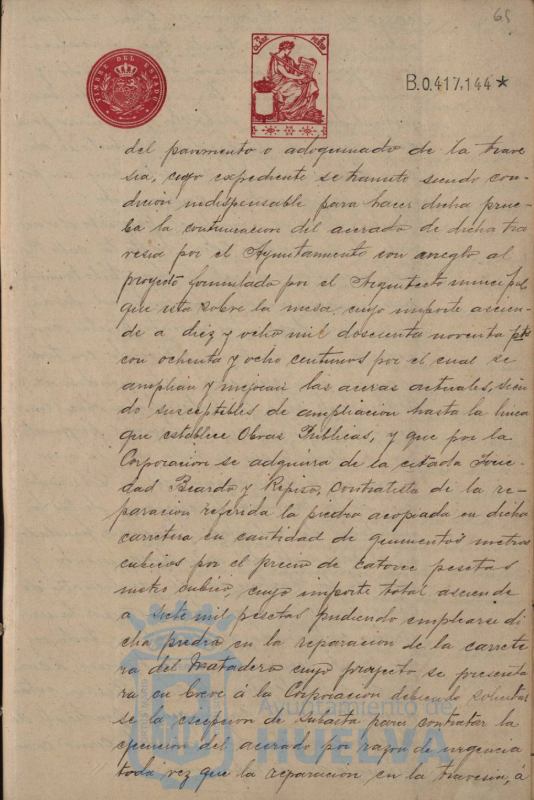 65
TIMBRE DEL ESTADO
B.0.417.144*
del pavimento o adoquinado de la trave
sia, cuyo expediente se tramita siendo con-
dicion indispensable para hacer dicha prue-
ba la continuacion del acerado de dicha tra
vesia por el Ayuntamiento con arreglo al
proyecto formulado por el Arquitecto municipal
que esta sobre la mesa, cuyo importe ascien-
de a diez y ocho mil doscienta noventa pts
con ochenta y ocho centimos por el cual se
amplian y mejoran las aceras actuales, sien
do susceptibles de ampliacion hasta la linea
que establece Obras Publicas, y que por la
Corporacion se adquiera de la citada Socie-
dad Beardo y Repiso, contratista de la re-
paracion referida la piedra acopiada en dicha
carretera en cantidad de quinientos metros
cubicos por el precio de catorce pesetas
metro cubico, cuyo importe total asciende
a siete mil pesetas pudiendo emplearse di
cha piedra en la reparacion de la carrete
ra del Matadero cuyo proyecto se presenta
ra en breve á la Corporacion debiendo solicitar
se la escepcion de subasta para contratar la
ejecucion del acerado por razon de urgencia
toda vez que la reparacion en la travesia, á
Ayuntamiento de
HUELVA